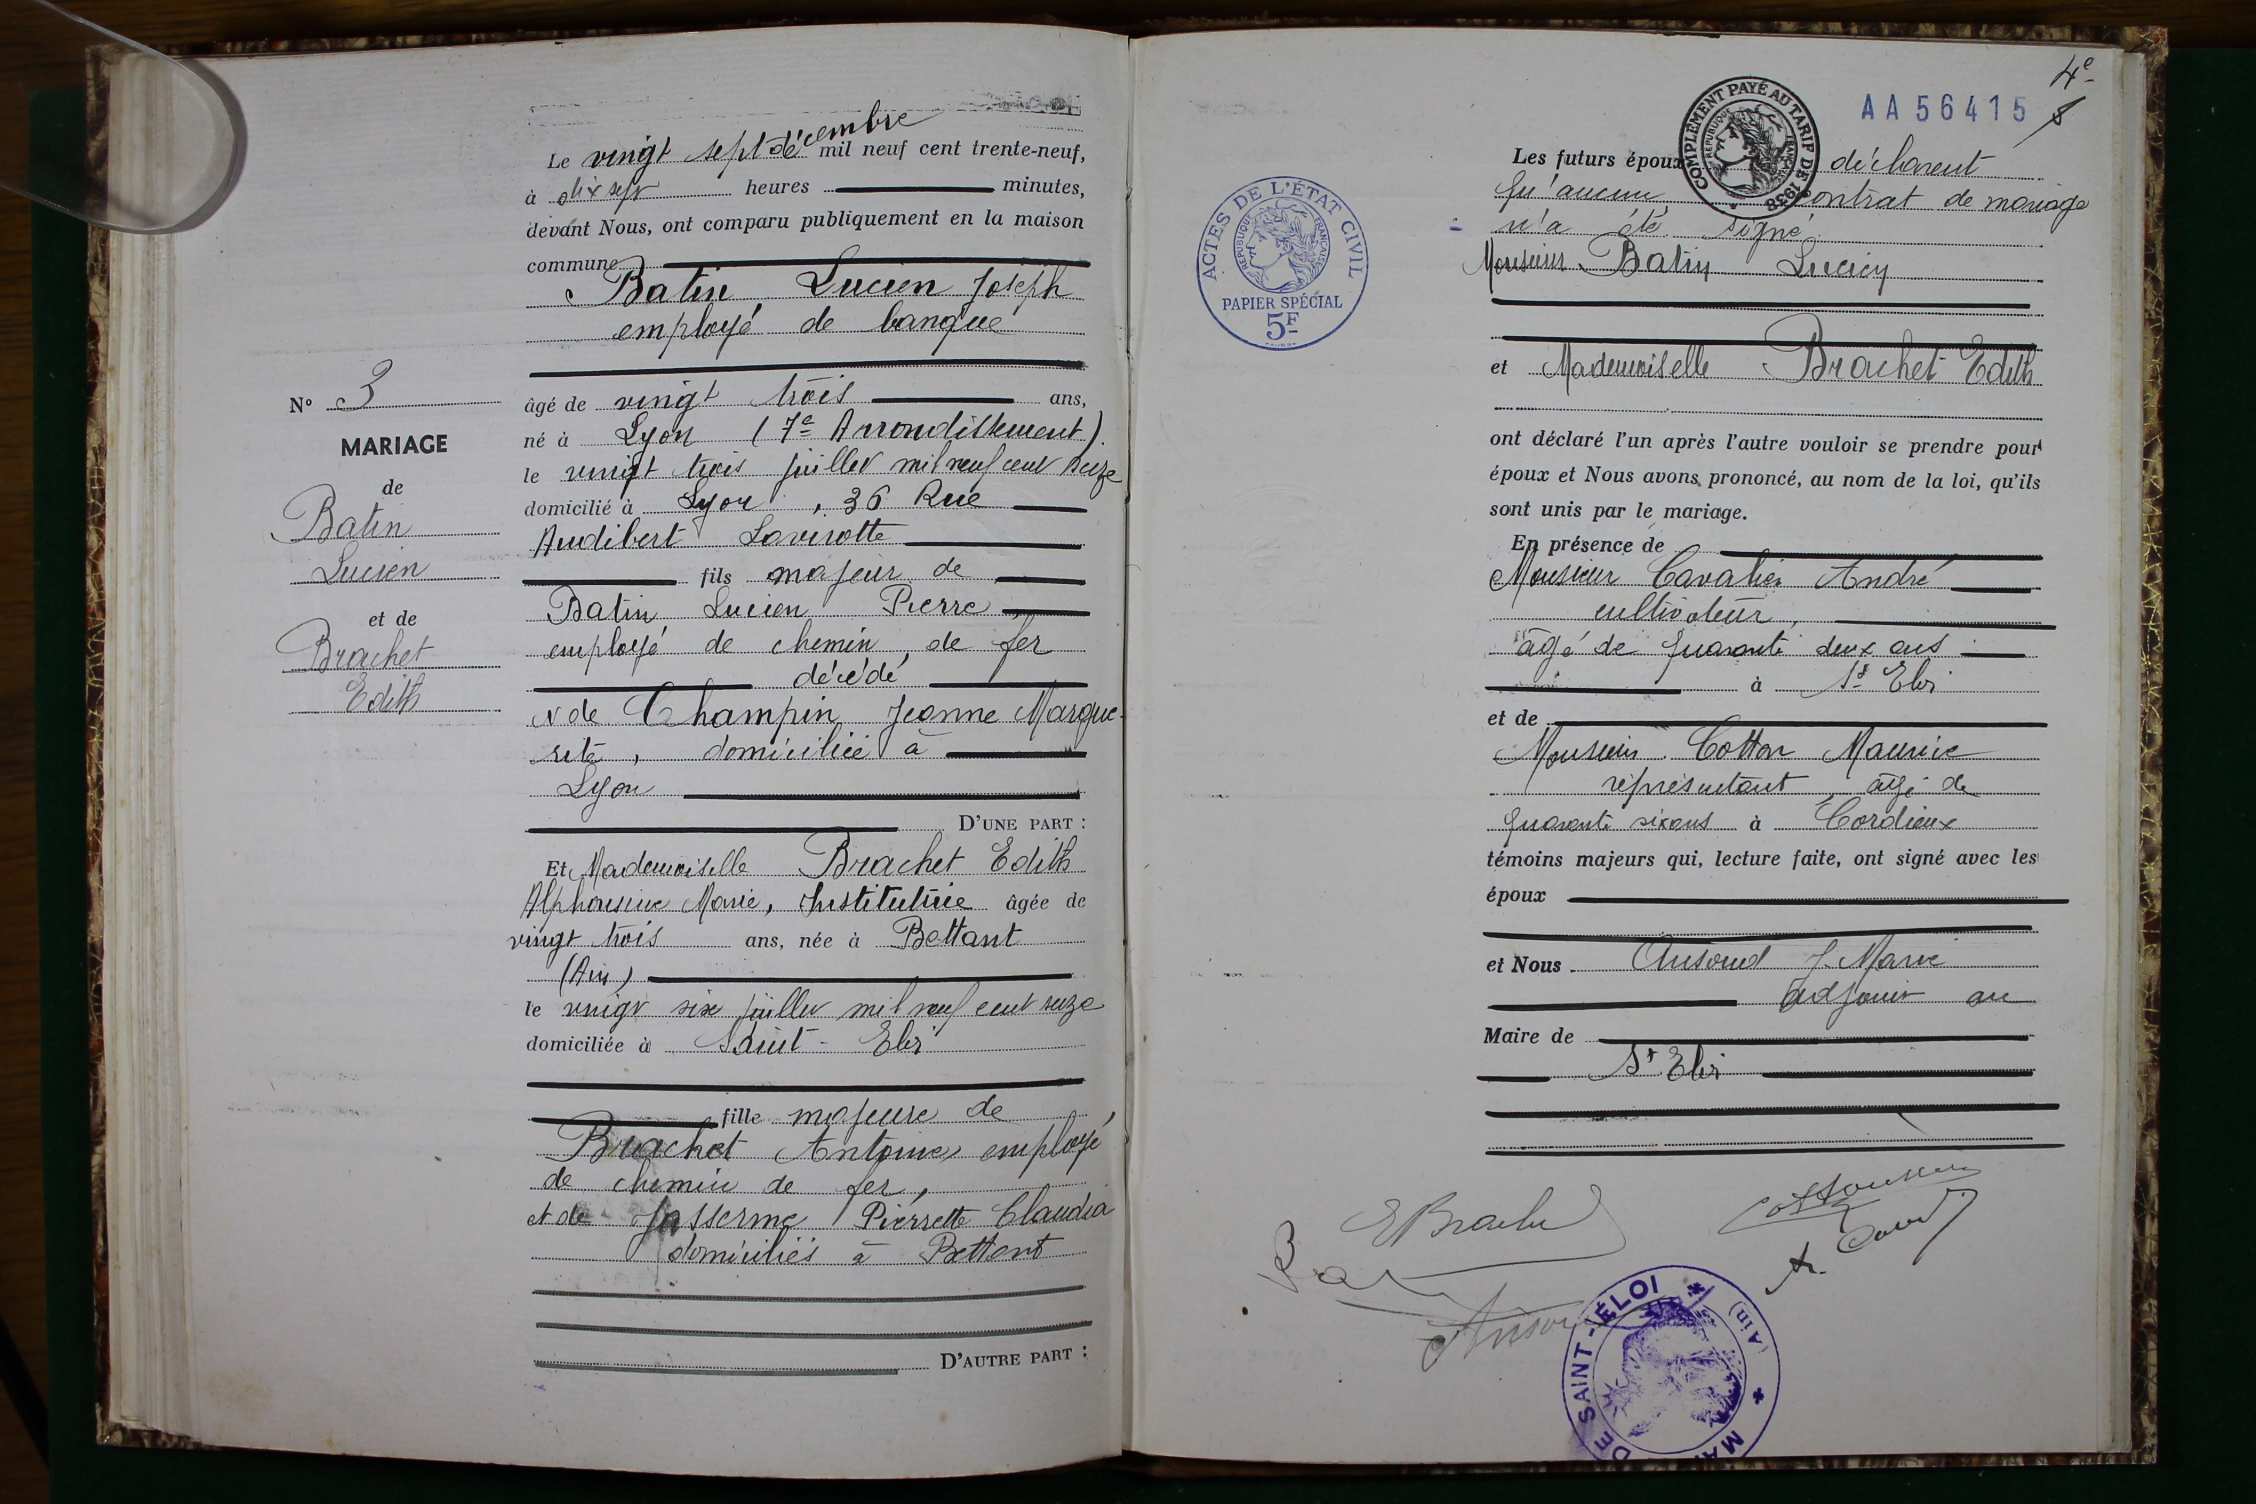 Le vingt sept décembre mil neuf cent trente-neuf,
à dix sept heures minutes,
devant Nous, ont comparu publiquement en la maison
commune
Batin, Lucien Joseph
employé de banque
âgé de vingt trois ans,
né à Lyon (7e Arrondissement)
le vingt trois juillet mil neuf cent seize
domicilié à Lyon, 36 Rue
Audibert Lavirotte
fils majeur de
Batin Lucien Pierre,
employé de chemin de fer
décédé
& de Champin Jeanne Margue-
rite, domiciliée à
Lyon
D'UNE PART :
Et Mademoiselle Brachet Edith
Alphonsine Marie, Institutrice âgée de
vingt trois ans, née à Bettant
(Ain)
le vingt six juillet mil neuf cent seize
domiciliée à Saint-Eloi
fille majeure de
Brachet Antoine employé
de chemin de fer,
et de Jasserme Pierrette Claudia
domiciliés à Bettant
D'AUTRE PART :
N° 3
MARIAGE
de
Batin
Lucien
et de
Brachet
Edith
4e
AA56415
COMPLÉMENT PAYÉ AU TARIF DE 1938
RÉPUBLIQUE FRANÇAISE
ACTES DE L'ÉTAT CIVIL
RÉPUBLIQUE FRANÇAISE
PAPIER SPÉCIAL
5F
Les futurs époux déclarent
qu'aucun contrat de mariage
n'a été signé
Monsieur Batin Lucien
et Mademoiselle Brachet Edith
ont déclaré l'un après l'autre vouloir se prendre pour
époux et Nous avons prononcé, au nom de la loi, qu'ils
sont unis par le mariage.
En présence de
Monsieur Cavalier André
cultivateur,
âgé de quarante deux ans
à St Eloi
et de
Monsieur Cotton Maurice
représentant âgé de
quarante six ans à Cordieux
témoins majeurs qui, lecture faite, ont signé avec les
époux
et Nous Ansoud J. Marie
adjoint au
Maire de
St Eloi
EBrachet
DE SAINT-ÉLOI
(Ain)
MA